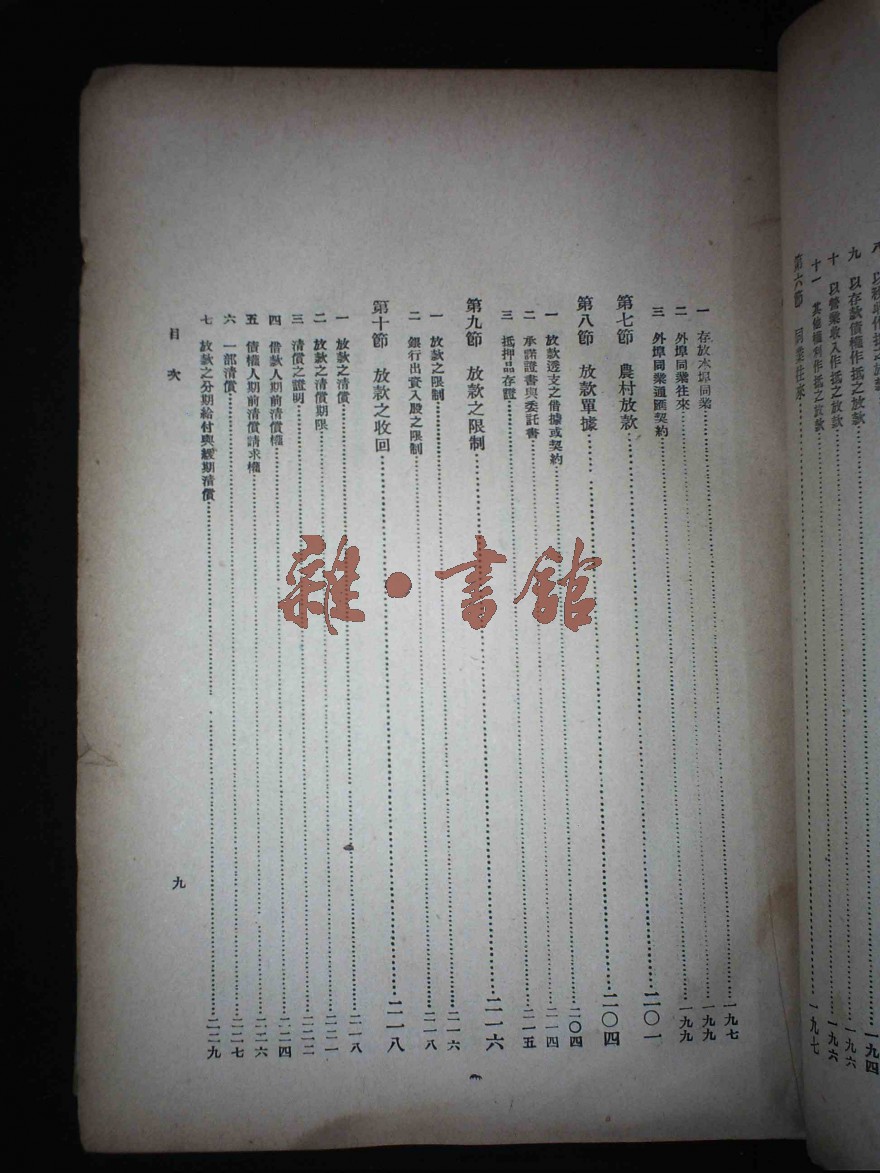 以存款債權作抵之放款……一九六
十 以營業收入作抵之放款……一九六
十一 其他權利作抵之放款……一九七
第六節 同業往來……一九七
一 存放本埠同業……一九七
二 外埠同業往來……一九九
三 外埠同業通匯契約……一九九
第七節 農村放款……二〇一
第八節 放款單據……二〇四
一 放款透支之借據或契約……二〇四
二 承諾證書與委託書……二一四
三 抵押品存證……二一五
第九節 放款之限制……二一六
一 放款之限制……二一六
二 銀行出資入股之限制……二一八
第十節 放款之收回……二一八
一 放款之清償……二一八
二 放款之清償期限……二二一
三 清償之證明……二二二
四 借款人期前清償權……二二四
五 債權人期前清償請求權……二二六
六 一部清償……二二七
七 放款之分期給付與緩期清償……二二九
目次 九
雜·書館